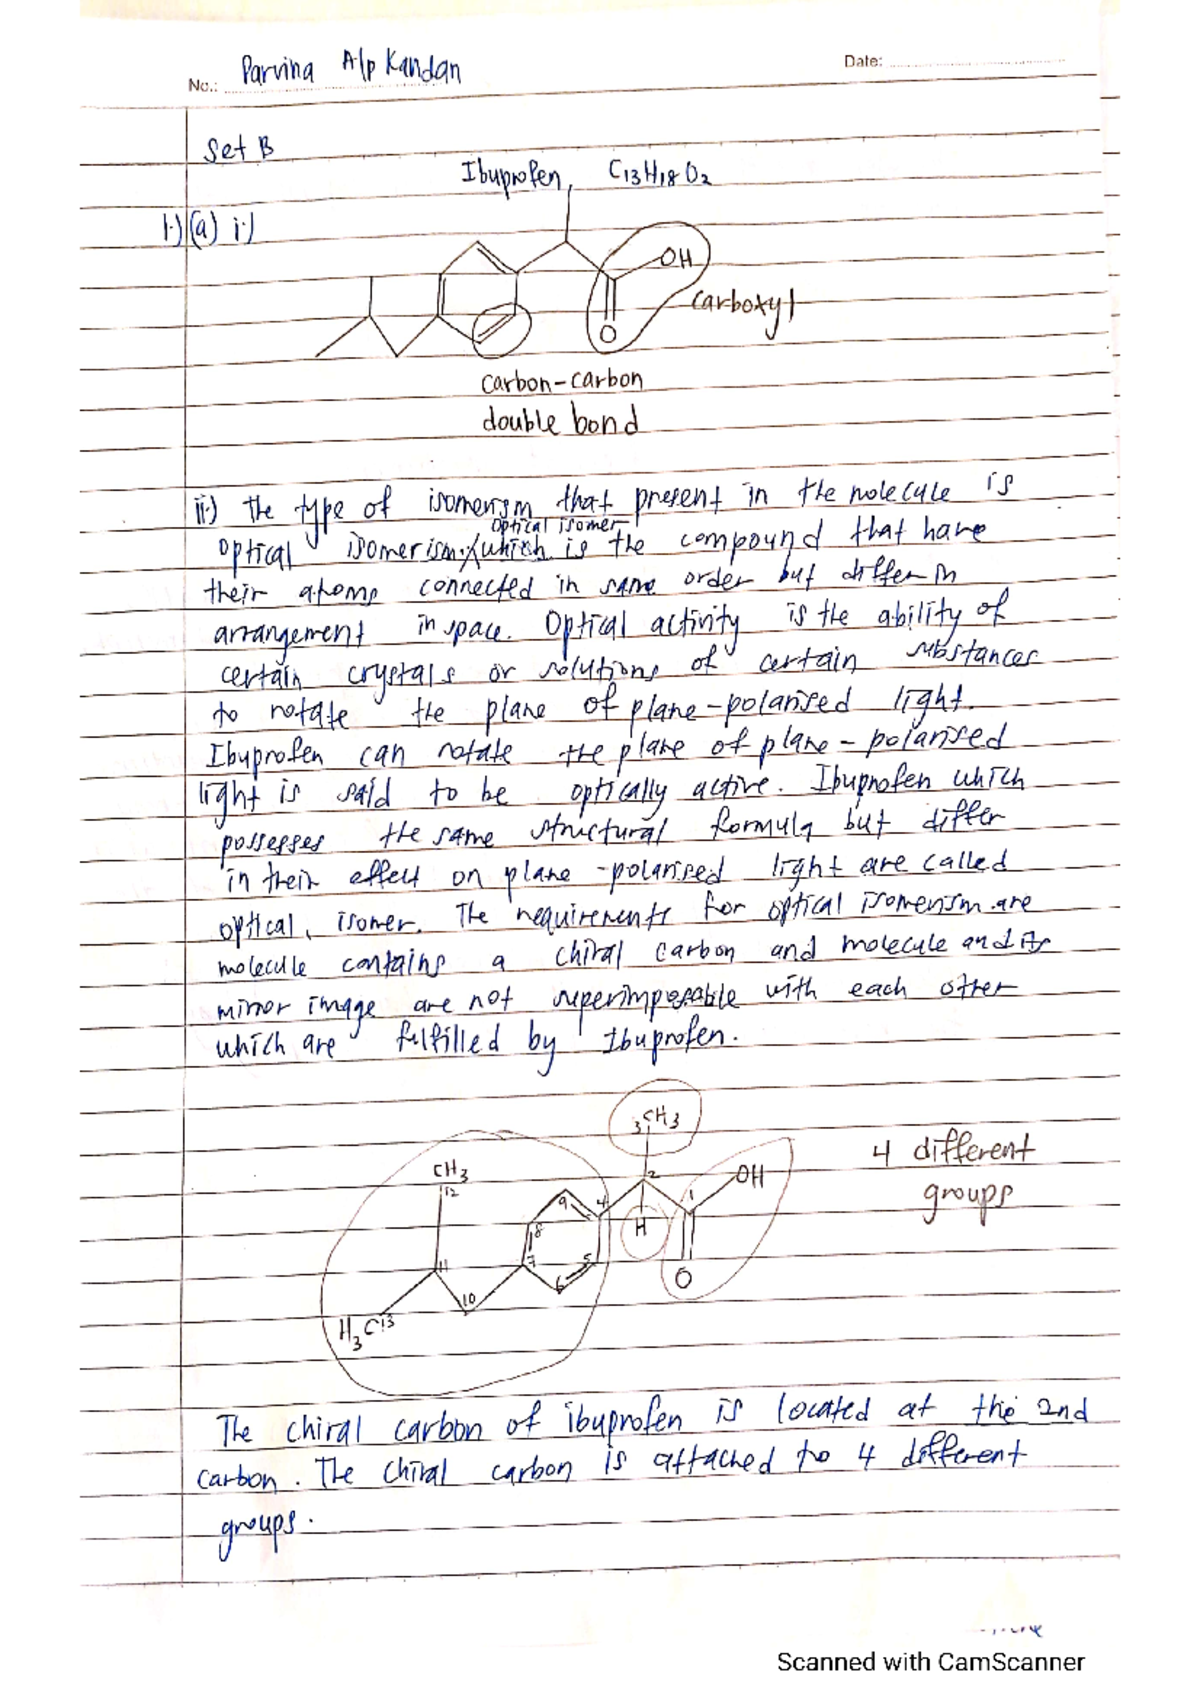 Parvina A/p Kandan
No.:
Date:
Set B
Ibuprofen, C13H18O2
1.) (a) i.)
OH
carboxyl
O
carbon-carbon
double bond
ii) The type of isomerism that present in the molecule is
optical isomer
optical isomerism. which is the compound that have
their atoms connected in same order but differ in
arrangement in space. Optical activity is the ability of
certain crystals or solutions of certain substances
to rotate the plane of plane-polarised light.
Ibuprofen can rotate the plane of plane-polarised
light is said to be optically active. Ibuprofen which
possesses the same structural formula but differ
in their effect on plane-polarised light are called
optical isomer. The requirements for optical isomerism are
molecule contains a chiral carbon and molecule and its
mirror image are not superimposable with each other
which are fulfilled by Ibuprofen.
3CH3
4 different
groups
CH3
12
2
OH
1
9
4
8
H
7
5
11
6
O
10
H3C13
The chiral carbon of ibuprofen is located at the 2nd
carbon. The chiral carbon is attached to 4 different
groups.
Scanned with CamScanner